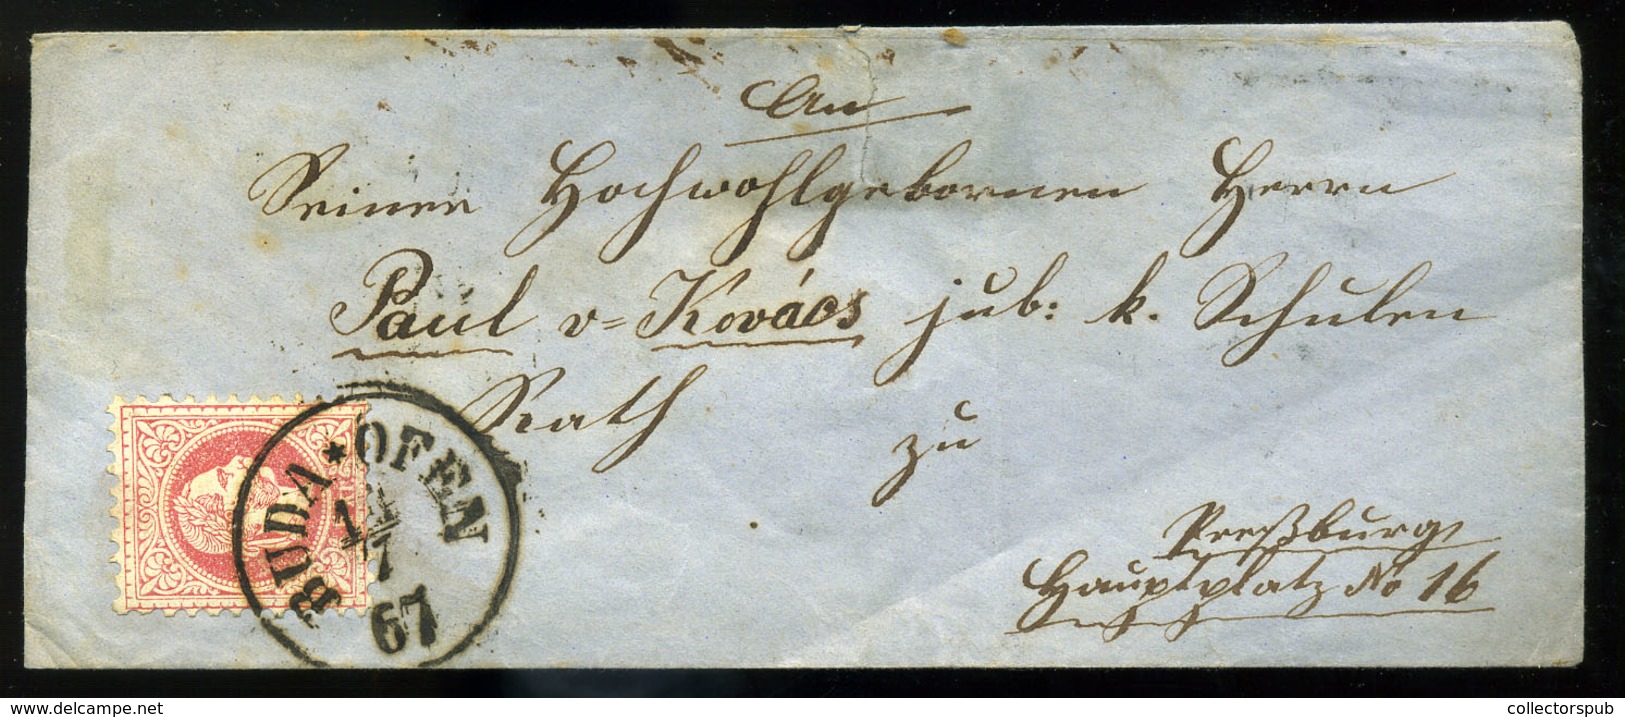 An
Seiner Hochwohlgebornen Herrn
Paul v= Kovács jub: k. Schulen
Rath
zu
Preßburg
Hauptplatz No 16
BUDA * OFEN
7
67
www.delcampe.net
collectorspub